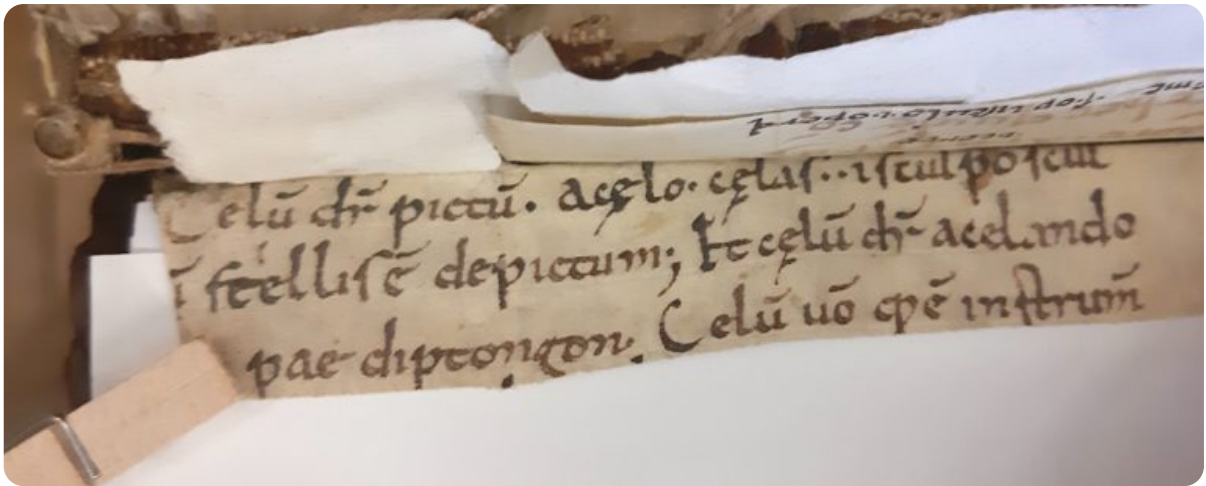 Celū dr̄ pictū. acęlo. cęlas. .isculpo scul
ī stellis ē depictum; Et cęlū dr̄ acelando
pae diptongon. Celū uō qđ ē instrum̄